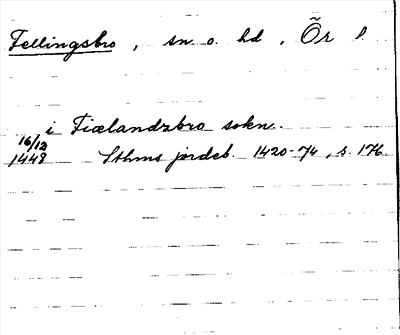 Fellingsbro, sn o. hd, Ör l.
i Fiælandzbro sokn.
16/12
1448 Sthms jordeb. 1420-74, s. 176.